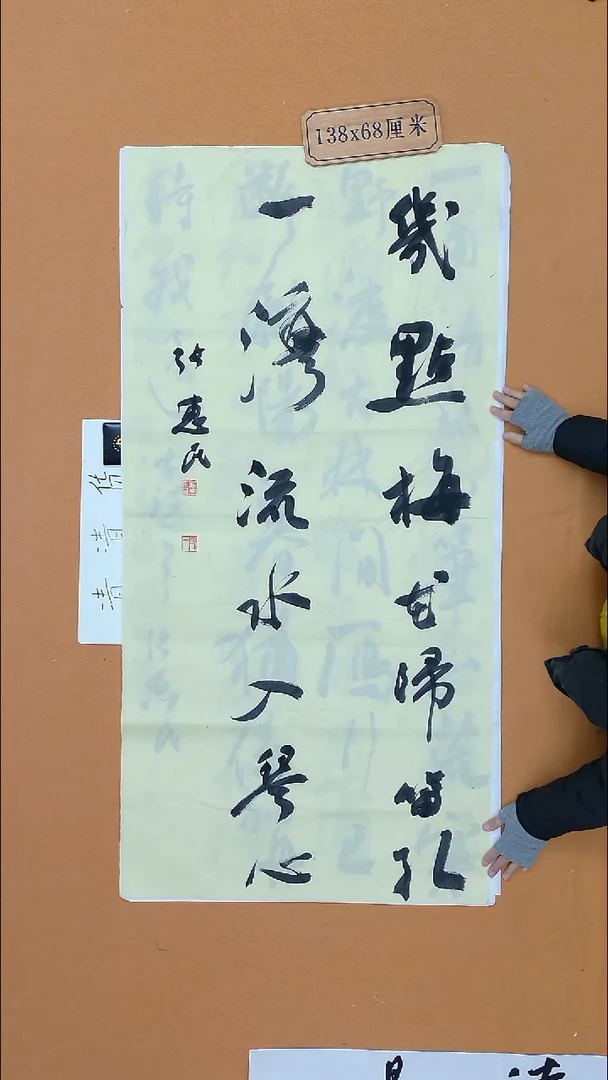 138x68厘米
幾點梅花歸笛孔
一灣流水入琴心
張惠民
清清货